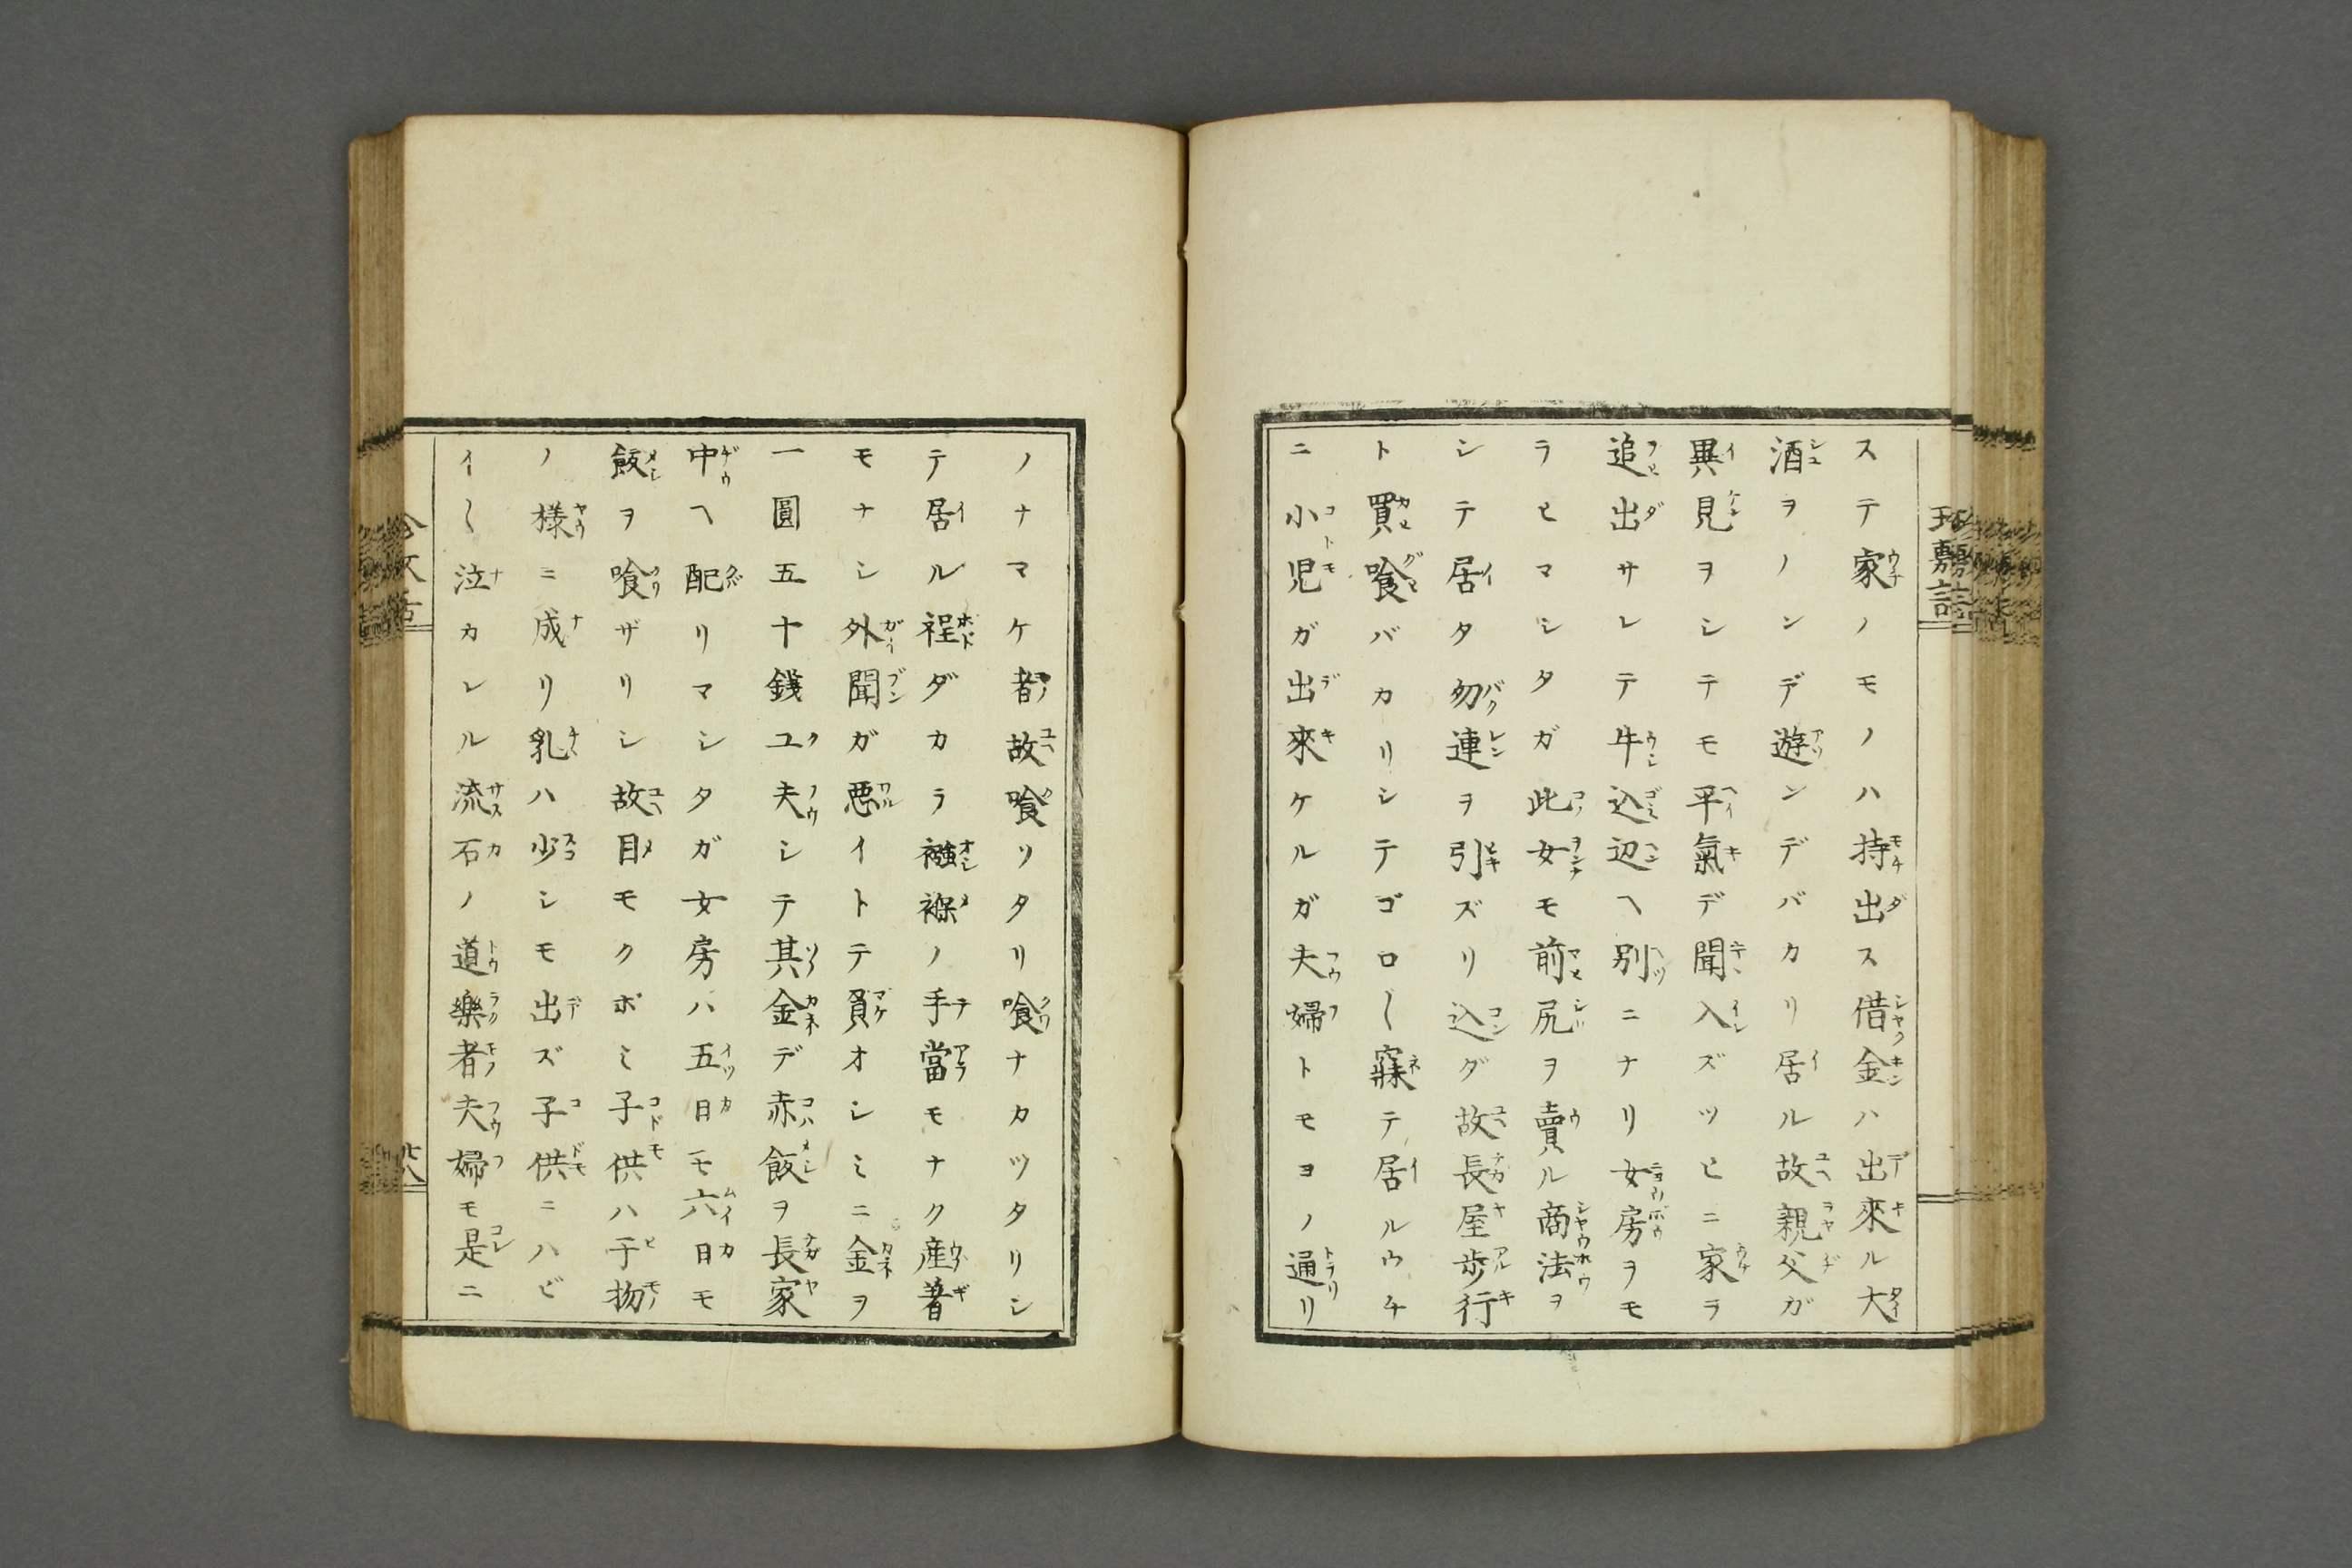 ステ家ノモノハ持出ス借金ハ出來ル大
酒ヲノンデ遊ンデバカリ居ル故親父ガ
異見ヲシテモ平氣デ聞入ズツヒニ家ラ
追出サレテ牛込辺ヘ別ニナリ女房ヲモ
ラヒマシタガ此女モ前尻ヲ賣ル商法ヲ
シテ居タ勿連ヲ引ズリ込ダ故長屋歩行
ト買喰バカリシテゴロ〱寐テ居ルウチ
ニ小児ガ出來ケルガ夫婦トモヨノ通リ
ノナマケ者故喰ツタリ喰ナカツタリシ
テ居ル程ダカラ襁褓ノ手當モナク産着
モナシ外聞ガ悪イトテ負オシミニ金ヲ
一圓五十錢ユ夫シテ其金デ赤飯ヲ長家
中ヘ配リマシタガ女房ハ五日モ六日モ
飯ヲ喰ザリシ故目モクボミ子供ハ干物
ノ様ニ成リ乳ハ少シモ出ズ子供ニハビ
イ〱泣カレル流石ノ道樂者夫婦モ是ニ